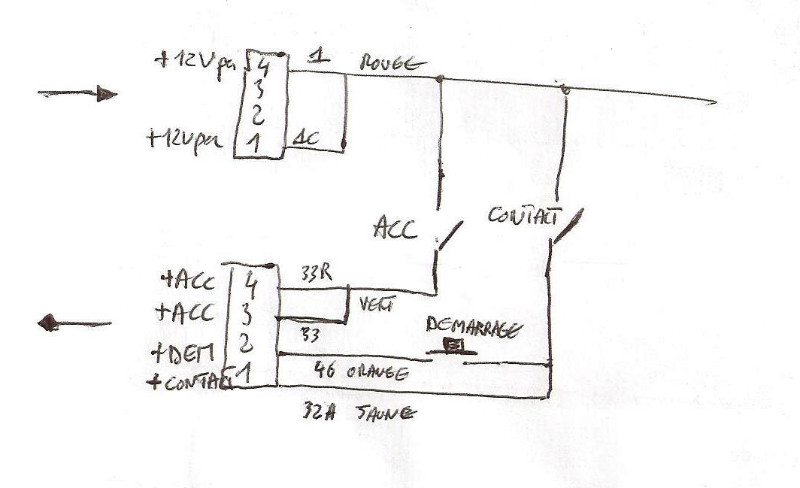 +12Vpa 4 1 ROUGE
3
2
+12Vpa 1 1C
ACC CONTACT
+ACC 4 33R
+ACC 3 VERT
33
+DEM 2 DEMARRAGE
+CONTACT 1 46 ORANGE
32A JAUNE